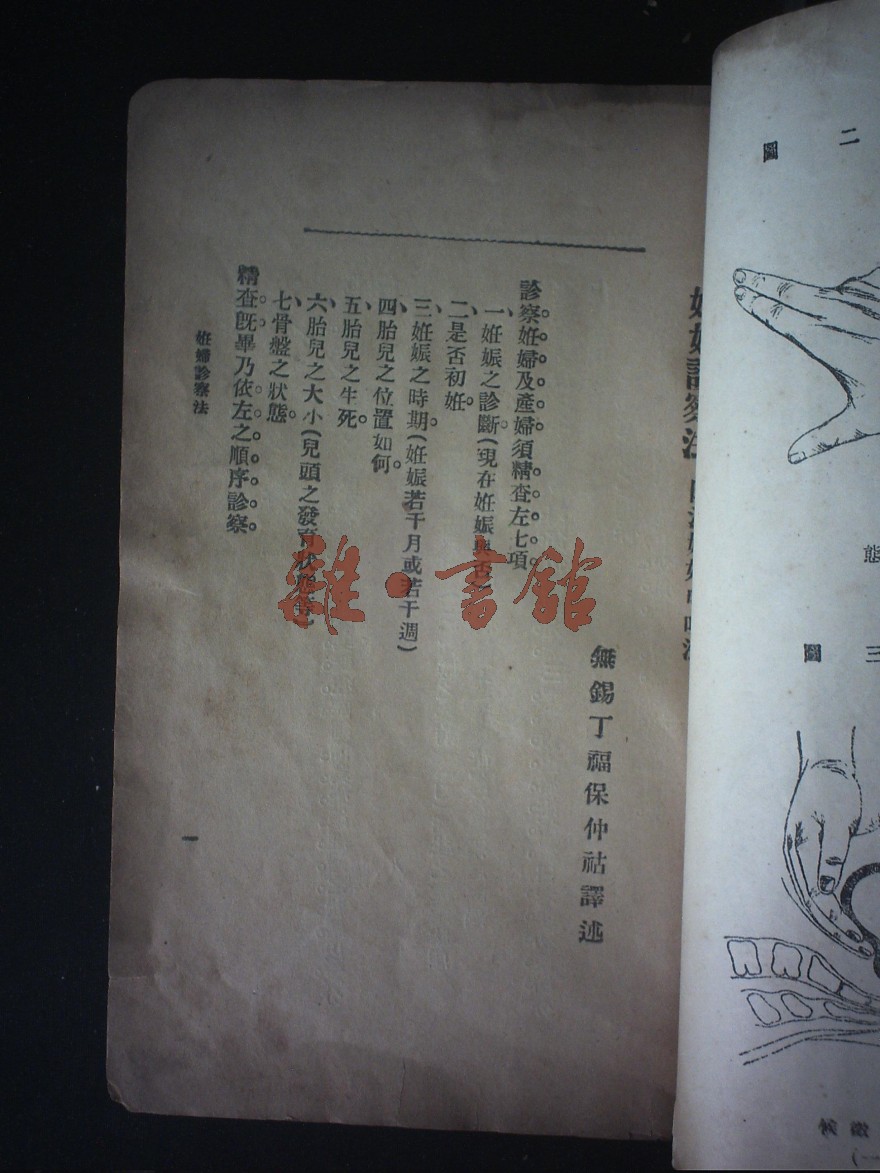 無錫丁福保仲祜譯述
診察姙婦及產婦須精查左七項
一、姙娠之診斷(現在姙娠與否)
二、是否初姙。
三、姙娠之時期(姙娠若干月或若干週)
四、胎兒之位置如何。
五、胎兒之生死。
六、胎兒之大小(兒頭之發育狀態等)
七、骨盤之狀態。
精查既畢乃依左之順序診察。
姙婦診察法
一
二圖
態
三圖
雜·書館